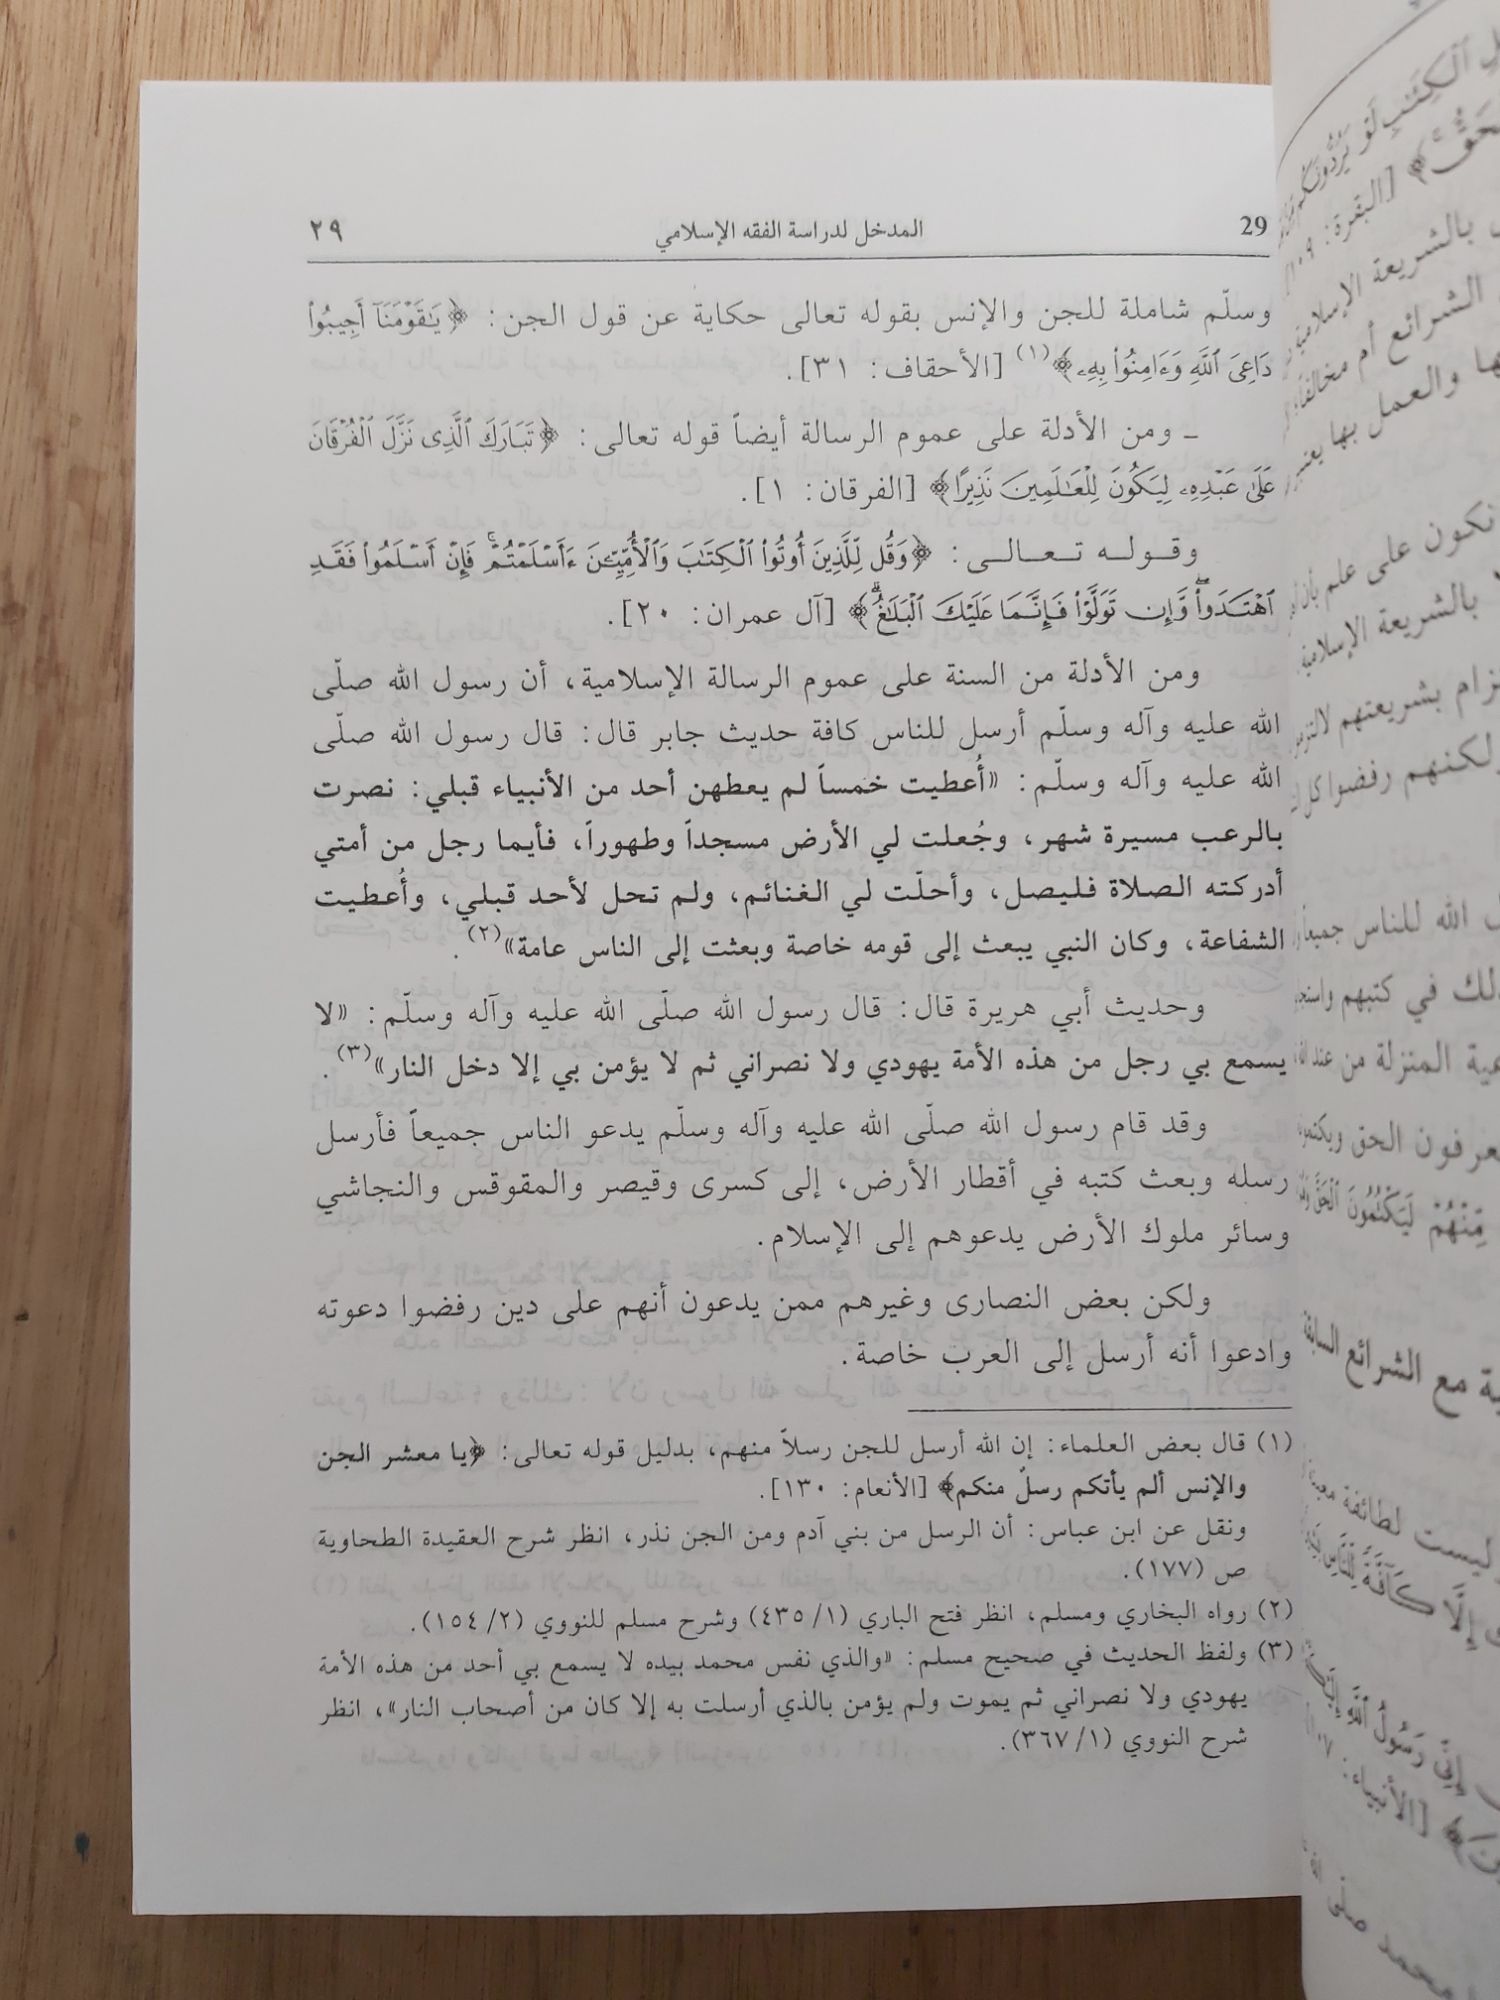 29 المدخل لدراسة الفقه الإسلامي ٢٩
وسلّم شاملة للجن والإنس بقوله تعالى حكاية عن قول الجن: ﴿يَٰقَوْمَنَآ أَجِيبُوا۟
دَاعِىَ ٱللَّهِ وَءَامِنُوا۟ بِهِۦ﴾(١) [الأحقاف: ٣١].
ـ ومن الأدلة على عموم الرسالة أيضاً قوله تعالى: ﴿تَبَارَكَ ٱلَّذِى نَزَّلَ ٱلْفُرْقَانَ
عَلَىٰ عَبْدِهِۦ لِيَكُونَ لِلْعَٰلَمِينَ نَذِيرًا﴾ [الفرقان: ١].
وقوله تعالى: ﴿وَقُل لِّلَّذِينَ أُوتُوا۟ ٱلْكِتَٰبَ وَٱلْأُمِّيِّۦنَ ءَأَسْلَمْتُمْ ۚ فَإِنْ أَسْلَمُوا۟ فَقَدِ
ٱهْتَدَوا۟ ۖ وَّإِن تَوَلَّوْا۟ فَإِنَّمَا عَلَيْكَ ٱلْبَلَٰغُ ۗ﴾ [آل عمران: ٢٠].
ومن الأدلة من السنة على عموم الرسالة الإسلامية، أن رسول الله صلّى
الله عليه وآله وسلّم أرسل للناس كافة حديث جابر قال: قال رسول الله صلّى
الله عليه وآله وسلّم: «أُعطيت خمساً لم يعطهن أحد من الأنبياء قبلي: نصرت
بالرعب مسيرة شهر، وجُعلت لي الأرض مسجداً وطهوراً، فأيما رجل من أمتي
أدركته الصلاة فليصل، وأحلّت لي الغنائم، ولم تحل لأحد قبلي، وأُعطيت
الشفاعة، وكان النبي يبعث إلى قومه خاصة وبعثت إلى الناس عامة»(٢).
وحديث أبي هريرة قال: قال رسول الله صلّى الله عليه وآله وسلّم: «لا
يسمع بي رجل من هذه الأمة يهودي ولا نصراني ثم لا يؤمن بي إلا دخل النار»(٣).
وقد قام رسول الله صلّى الله عليه وآله وسلّم يدعو الناس جميعاً فأرسل
رسله وبعث كتبه في أقطار الأرض، إلى كسرى وقيصر والمقوقس والنجاشي
وسائر ملوك الأرض يدعوهم إلى الإسلام.
ولكن بعض النصارى وغيرهم ممن يدعون أنهم على دين رفضوا دعوته
وادعوا أنه أرسل إلى العرب خاصة.
(١) قال بعض العلماء: إن الله أرسل للجن رسلاً منهم، بدليل قوله تعالى: ﴿يا معشر الجن
والإنس ألم يأتكم رسلٌ منكم﴾ [الأنعام: ١٣٠].
ونقل عن ابن عباس: أن الرسل من بني آدم ومن الجن نذر، انظر شرح العقيدة الطحاوية
ص (١٧٧).
(٢) رواه البخاري ومسلم، انظر فتح الباري (١/ ٤٣٥) وشرح مسلم للنووي (٢/ ١٥٤).
(٣) ولفظ الحديث في صحيح مسلم: «والذي نفس محمد بيده لا يسمع بي أحد من هذه الأمة
يهودي ولا نصراني ثم يموت ولم يؤمن بالذي أرسلت به إلا كان من أصحاب النار»، انظر
شرح النووي (١/ ٣٦٧).
ٱلْكِتَٰبِ لَوْ يَرُدُّونَكُم
[البقرة:
بالشريعة الإسلامية
الشرائع أم
والعمل بها
نكون على علم بأن
بالشريعة الإسلامية
بشريعتهم
ولكنهم رفضوا كل
الله للناس جميعاً
في كتبهم
المنزلة من عند
يعرفون الحق
مِّنْهُمْ لَيَكْتُمُونَ ٱلْحَقَّ
مع الشرائع السابقة
ليست لطائفة
إِلَّا كَآفَّةً لِّلنَّاسِ
إِنِّى رَسُولُ ٱللَّهِ
[الأنبياء: